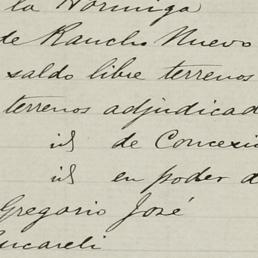 la Hormiga
de Rancho Nuevo
saldo libre terrenos
terrenos adjudicad
id de Concesi
id en poder d
Gregorio José
ucareli